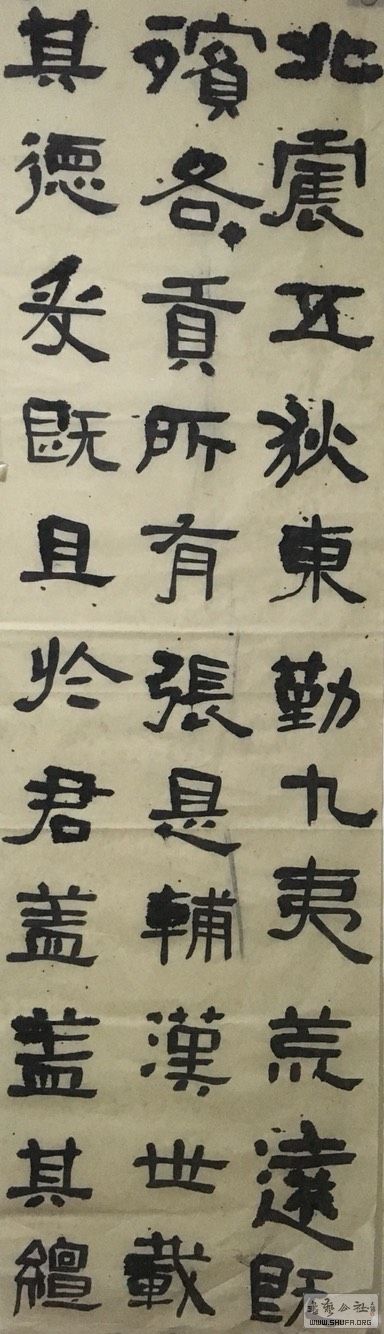 北震五狄東勤九夷荒遠既
殯各貢所有張是輔漢世載
其德爰既且於君盖盖其繵
藝公社
WWW.SHUFA.ORG